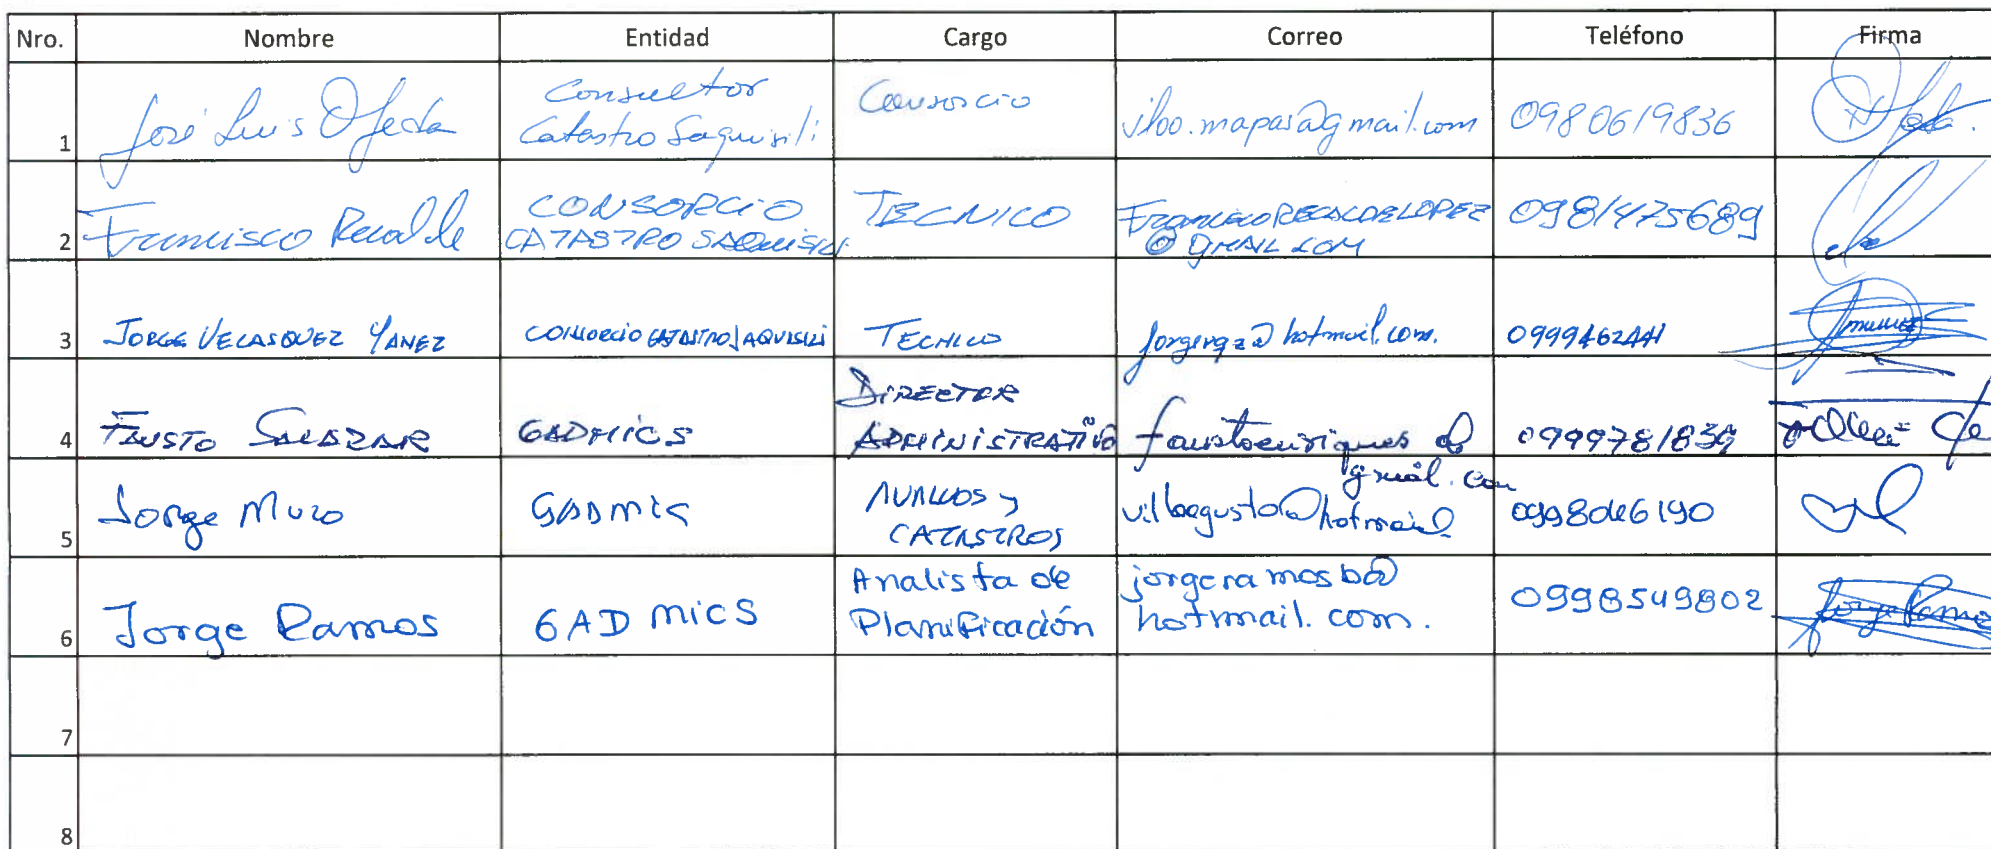 Nro. Nombre Entidad Cargo Correo Teléfono Firma
1 José Luis Ojeda Consultor Catastro Saquisilí Consorcio jloo.mapas@gmail.com 0980619836
2 Francisco Recalde CONSORCIO CATASTRO SAQUISILI TECNICO FRANCISCORECALDELOPEZ@GMAIL.COM 0981475689
3 JORGE VELASQUEZ YANEZ CONSORCIO CATASTRO SAQUISILI TECNICO hotmail.com.
4 FAUSTO SALAZAR GADMICS DIRECTOR ADMINISTRATIVO faustoenriques@gmail.com
5 Jorge Muzo GADMICS AVALUOS y CATASTROS villaegusto@hotmail 0998046190
6 Jorge Ramos GAD MICS Analista de Planificación jorgeramosb@hotmail.com. 0998549802
7
8